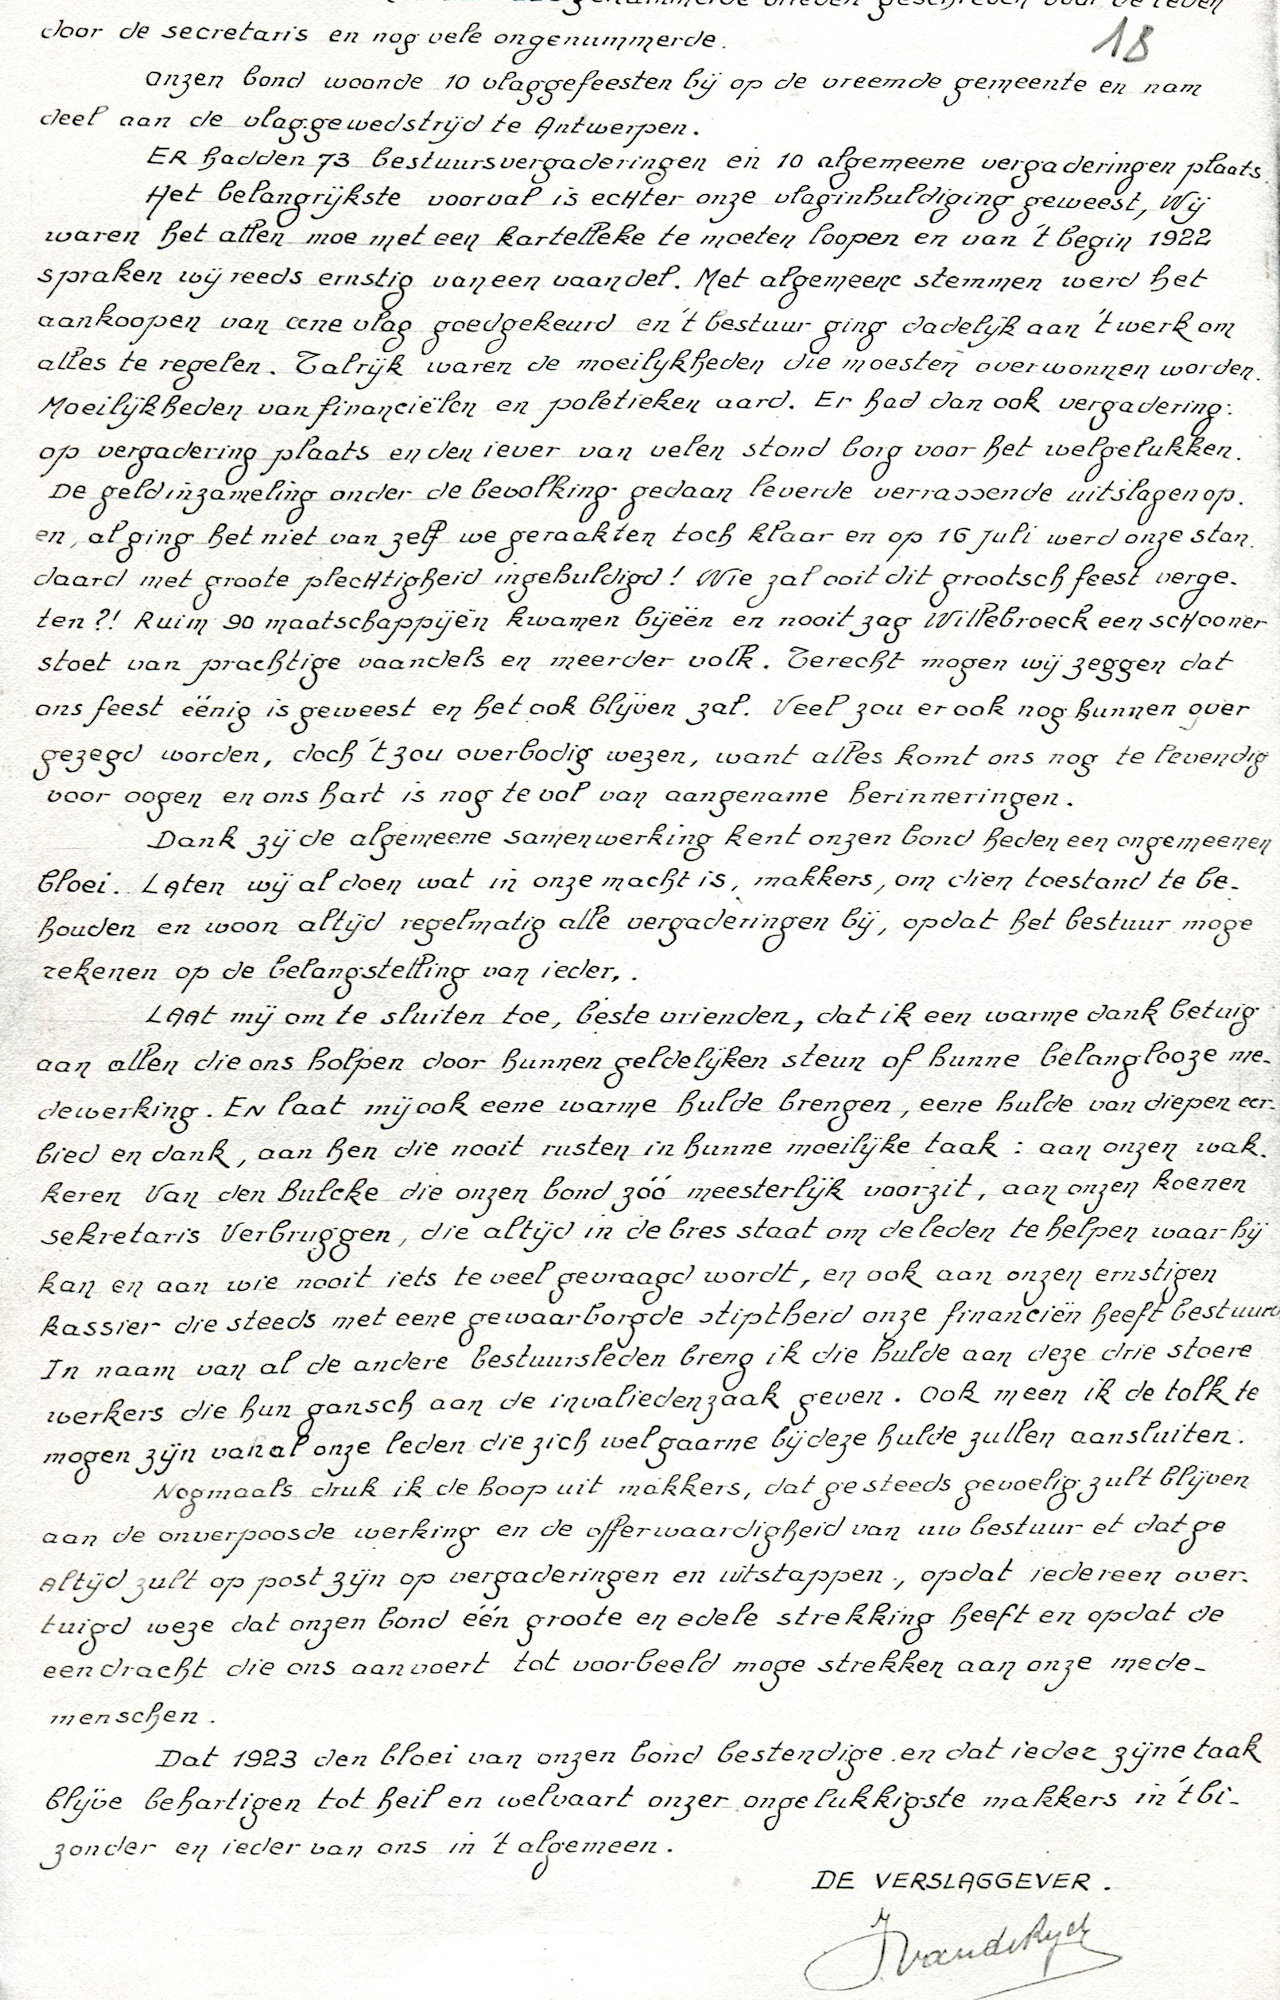 genummerde brieven geschreven voor de leden
door de secretaris en nog vele ongenummerde.
18
Onzen bond woonde 10 vlaggefeesten bij op de vreemde gemeente en nam
deel aan de vlaggewedstrijd te Antwerpen.
Er hadden 73 bestuursvergaderingen en 10 algemeene vergaderingen plaats.
Het belangrijkste voorval is echter onze vlaginhuldiging geweest, Wij
waren het allen moe met een kartelleke te moeten loopen en van 't begin 1922
spraken wij reeds ernstig van een vaandel. Met algemeene stemmen werd het
aankoopen van eene vlag goedgekeurd en 't bestuur ging dadelijk aan 't werk om
alles te regelen. Talrijk waren de moeilijkheden die moesten overwonnen worden.
Moeilijkheden van financiëlen en poletieken aard. Er had dan ook vergadering
op vergadering plaats en den iever van velen stond borg voor het welgelukken.
De geldinzameling onder de bevolking gedaan leverde verrassende uitslagen op.
en, al ging het niet van zelf we geraakten toch klaar en op 16 juli werd onze stan.
daard met groote plechtigheid ingehuldigd! Wie zal ooit dit grootsch feest verge-
ten?! Ruim 90 maatschappijën kwamen bijeën en nooit zag Willebroeck een schooner
stoet van prachtige vaandels en meerder volk. Terecht mogen wij zeggen dat
ons feest éénig is geweest en het ook blijven zal. Veel zou er ook nog kunnen over
gezegd worden, doch 't zou overbodig wezen, want alles komt ons nog te levendig
voor oogen en ons hart is nog te vol van aangename herinneringen.
Dank zij de algemeene samenwerking kent onzen bond heden een ongemeenen
bloei. Laten wij al doen wat in onze macht is, makkers, om dien toestand te be-
houden en woon altijd regelmatig alle vergaderingen bij, opdat het bestuur moge
rekenen op de belangstelling van ieder,.
Laat mij om te sluiten toe, beste vrienden, dat ik een warme dank betuig
aan allen die ons holpen door hunnen geldelijken steun of hunne belanglooze me-
dewerking. En laat mij ook eene warme hulde brengen, eene hulde van diepen eer-
bied en dank, aan hen die nooit rusten in hunne moeilijke taak: aan onzen wak.
keren Van den Bulcke die onzen bond zóó meesterlijk voorzit, aan onzen koenen
sekretaris Verbruggen, die altijd in de bres staat om de leden te helpen waar hij
kan en aan wie nooit iets te veel gevraagd wordt, en ook aan onzen ernstigen
kassier die steeds met eene gewaarborgde stiptheid onze financiën heeft bestuurd
In naam van al de andere bestuursleden breng ik die hulde aan deze drie stoere
werkers die hun gansch aan de invaliedenzaak geven. Ook meen ik de tolk te
mogen zijn van al onze leden die zich welgaarne bij deze hulde zullen aansluiten.
Nogmaals druk ik de hoop uit makkers, dat ge steeds gevoelig zult blijven
aan de onverpoosde werking en de offerwaardigheid van uw bestuur et dat ge
Altijd zult op post zijn op vergaderingen en uitstappen., opdat iedereen over-
tuigd weze dat onzen bond één groote en edele strekking heeft en opdat de
eendracht die ons aanvoert tot voorbeeld moge strekken aan onze mede-
menschen.
Dat 1923 den bloei van onzen bond bestendige en dat ieder zijne taak
blijve behartigen tot heil en welvaart onzer ongelukkigste makkers in 't bi-
zonder en ieder van ons in 't algemeen.
DE VERSLAGGEVER.